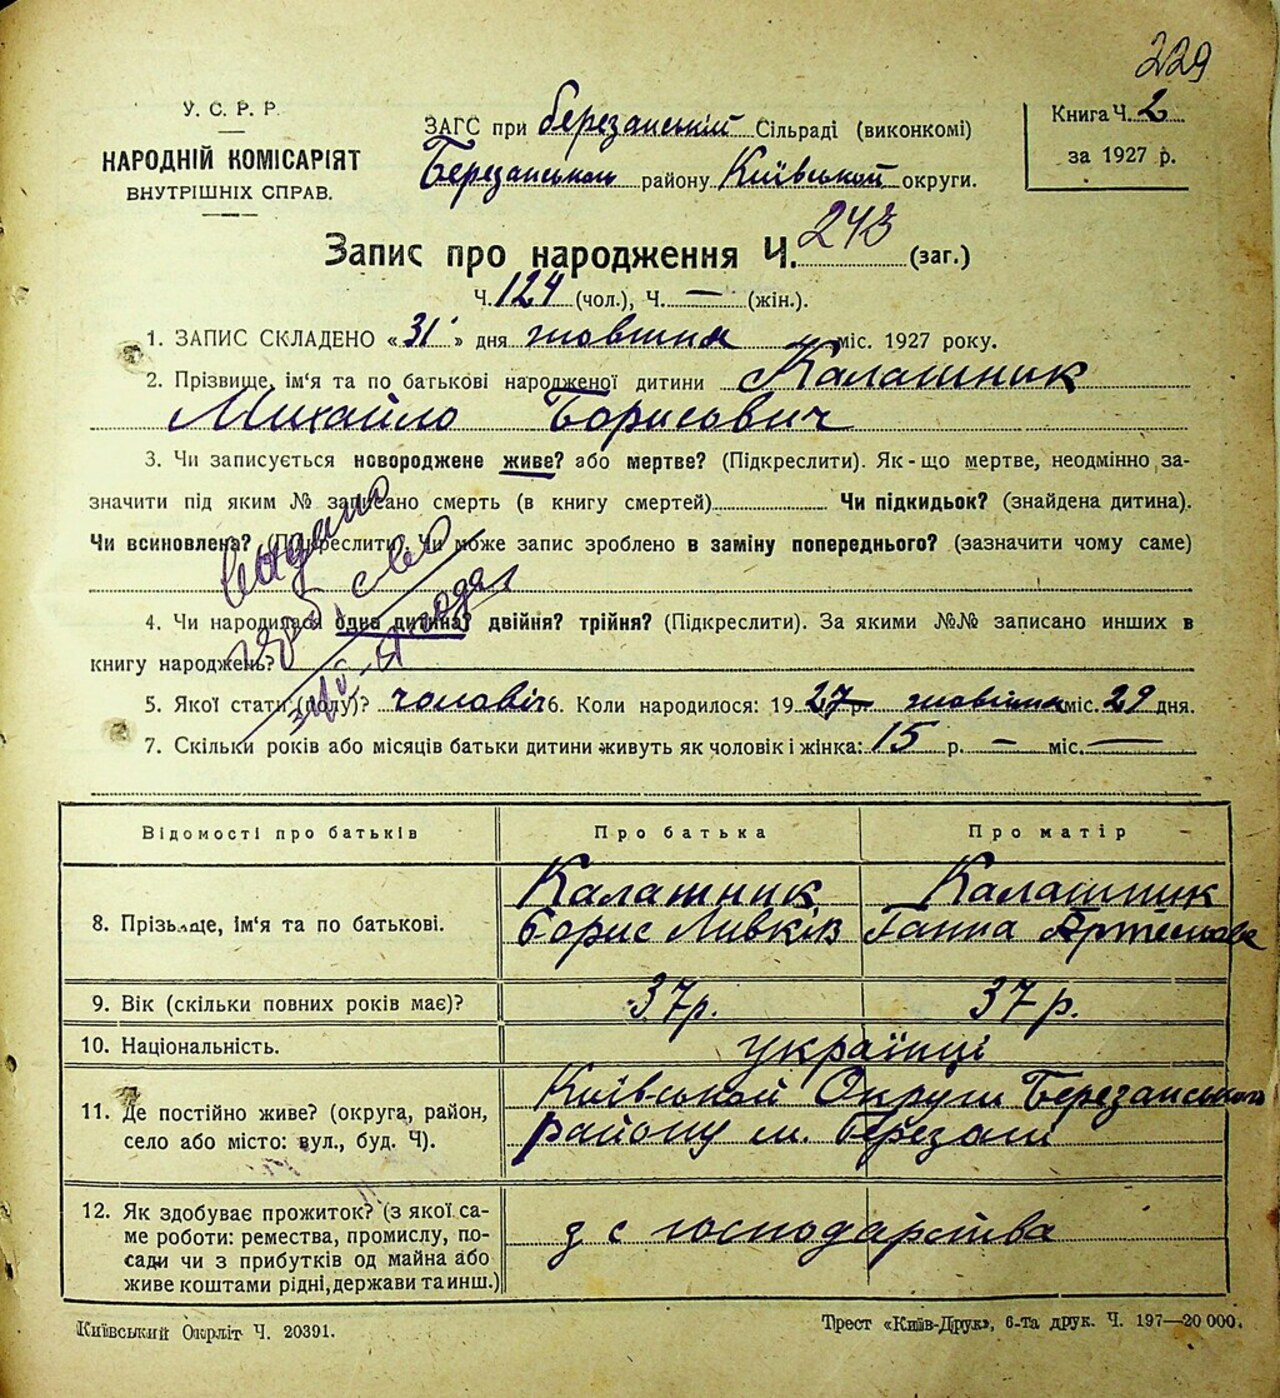 229
У. С. Р. Р.
НАРОДНІЙ КОМІСАРІЯТ
ВНУТРІШНІХ СПРАВ.
ЗАГС при березанській Сільраді (виконкомі)
Березанського району Київської округи.
Книга Ч. 2
за 1927 р.
Запис про народження Ч. 243 (заг.)
Ч. 124 (чол.), Ч. — (жін.).
1. ЗАПИС СКЛАДЕНО « 31 » дня жовтня міс. 1927 року.
2. Прізвище, ім'я та по батькові народженої дитини Калашник
Михайло Борисович
3. Чи записується новороджене живе? або мертве? (Підкреслити). Як-що мертве, неодмінно за-
значити під яким № записано смерть (в книгу смертей) Чи підкидьок? (знайдена дитина).
Чи всиновлена? (Підкреслити). Чи може запис зроблено в заміну попереднього? (зазначити чому саме)
4. Чи народилася одна дитина? двійня? трійня? (Підкреслити). За якими №№ записано инших в
книгу народжень?
5. Якої стати (полу)? чоловіч 6. Коли народилося: 1927 р. жовтня міс. 29 дня.
7. Скільки років або місяців батьки дитини живуть як чоловік і жінка: 15 р. — міс. —
Відомості про батьків Про батька Про матір
8. Прізвище, ім'я та по батькові. Калашник Калашник
Борис Ганна
9. Вік (скільки повних років має)? 37 р. 37 р.
10. Національність. українці
11. Де постійно живе? (округа, район, Київської Округи Березанського
село або місто: вул., буд. Ч). району м. Березані
12. Як здобуває прожиток? (з якої са-
ме роботи: ремества, промислу, по- з с господарства
сади чи з прибутків од майна або
живе коштами рідні, держави та инш.)
Київський Окрліт Ч. 20391.
Трест «Київ-Друк», 6-та друк. Ч. 197—20 000.